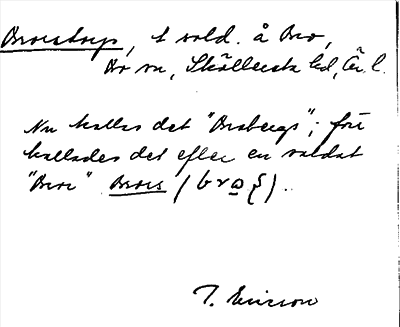 Broestorp, t sold. å Bro,
Br sn, Sköllersta hd, Ör l.
Nu kallas det "Brobergs"; förr
kallades det efter en soldat
"Broe" Broes
T. Ericson